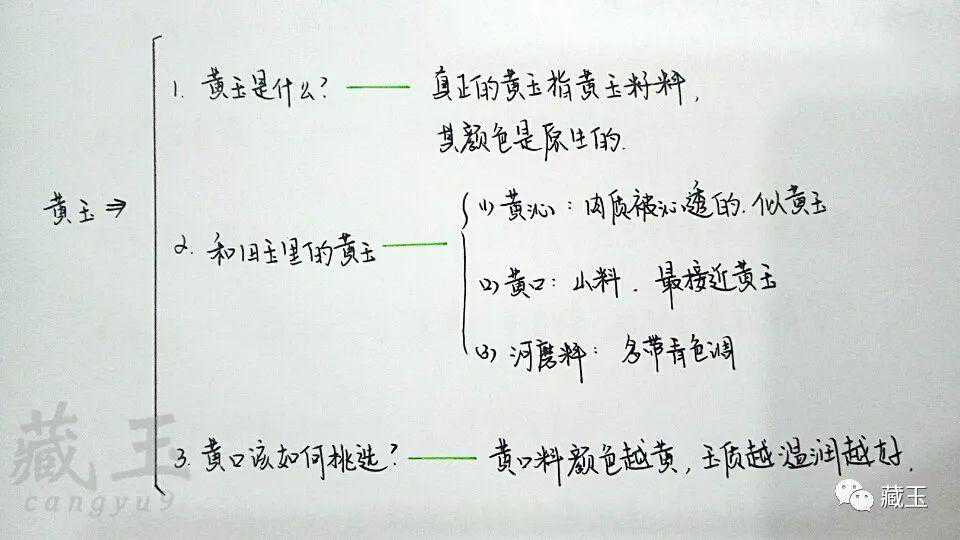 黄玉⇒
1. 黄玉是什么?
真正的黄玉指黄玉籽料,
其颜色是原生的.
2. 和旧玉里的黄玉
(1) 黄沁: 肉质被沁透的.似黄玉
(2) 黄口: 山料. 最接近黄玉
(3) 河磨料: 多带青色调
3. 黄口该如何挑选?
黄口料颜色越黄,玉质越温润越好.
藏玉
cangyu9
藏玉